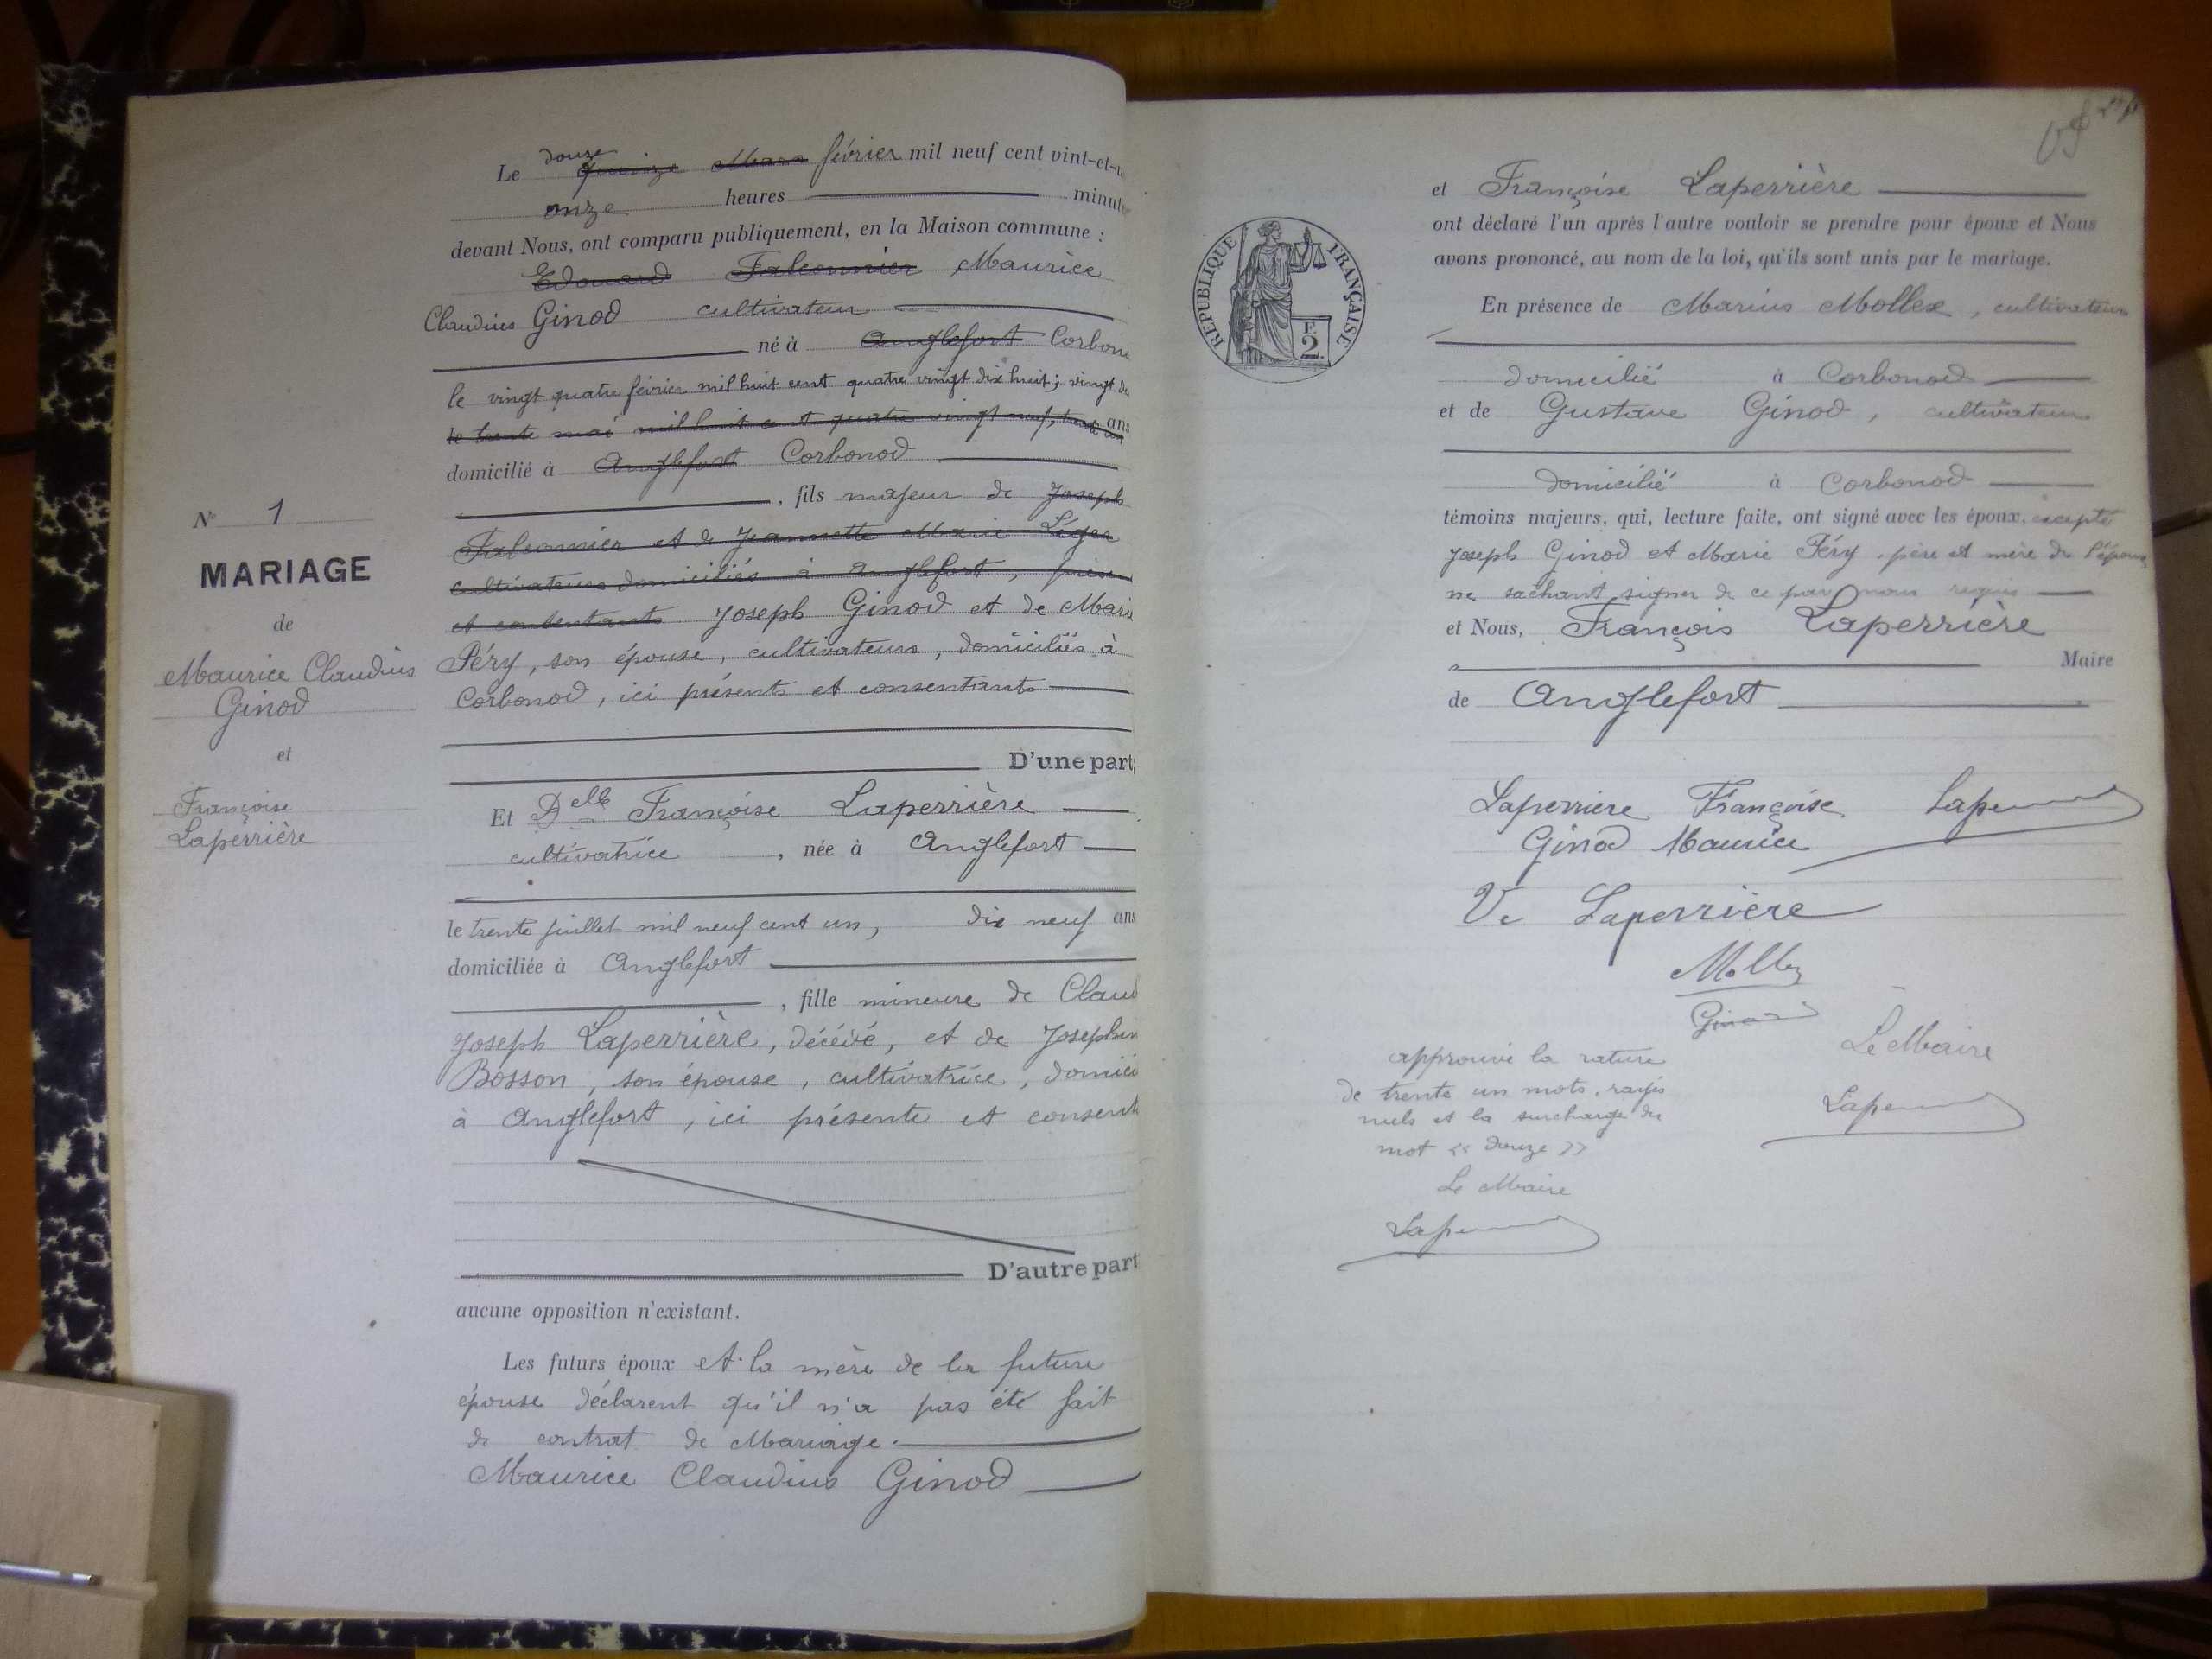 douze
Le quinze Mars février mil neuf cent vint-et-u
onze heures minute
devant Nous, ont comparu publiquement, en la Maison commune :
Edouard Falconnier Maurice
Claudius Ginod cultivateur
né à Anglefort Corbon
le vingt quatre février mil huit cent quatre vingt dix huit; vingt de
le trente mai mil huit cent quatre vingt neuf, trente un ans
domicilié à Anglefort Corbonod
, fils majeur de Joseph
Falconnier et de Jeannette Marie Léger
cultivateurs domiciliés à Anglefort, prése
et contentants Joseph Ginod et de Marie
Péry, son épouse, cultivateurs, domiciliés à
Corbonod, ici présents et consentants
D'une part;
N° 1
MARIAGE
de
Maurice Claudius
Ginod
et
Françoise
Laperrière
Et Delle Françoise Laperrière
cultivatrice , née à Anglefort
le trente juillet mil neuf cent un, dix neuf ans
domiciliée à Anglefort
, fille mineure de Claud
Joseph Laperrière, décédé, et de Josephin
Bosson, son épouse, cultivatrice, domici
à Anglefort, ici présente et consent
D'autre part
aucune opposition n'existant.
Les futurs époux et la mère de la future
épouse déclarent qu'il n'a pas été fait
de contrat de Mariage.
Maurice Claudius Ginod
et Françoise Laperrière
ont déclaré l'un après l'autre vouloir se prendre pour époux et Nous
avons prononcé, au nom de la loi, qu'ils sont unis par le mariage.
RÉPUBLIQUE FRANÇAISE
F.
2
En présence de Marius Mollex, cultivateur
domicilié à Corbonod
et de Gustave Ginod, cultivateur
domicilié à Corbonod
témoins majeurs, qui, lecture faite, ont signé avec les époux, excepté
Joseph Ginod et Marie Péry, père et mère de l'époux
ne sachant signer de ce par nous requis
et Nous, François Laperrière
Maire
de Anglefort
Laperriere Françoise
Ginod Maurice
Ve Laperrière
Mollex
Ginod
Le Maire
approuvé la rature
de trente un mots rayés
nuls et la surcharge du
mot « douze »
Le Maire